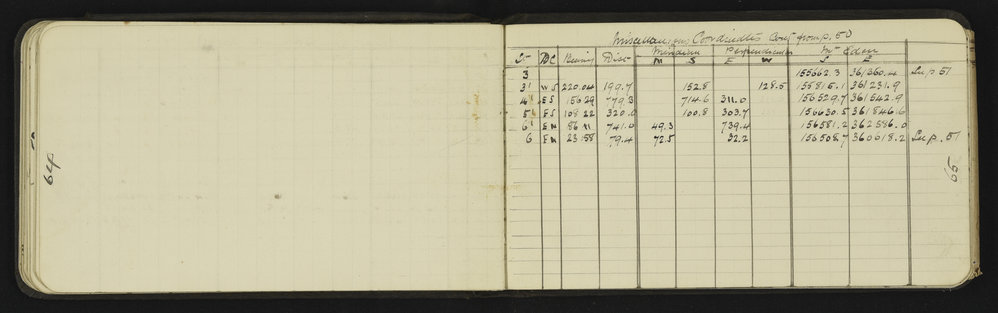 64
Miscellaneous Coordinates Cont from p. 50
Meridian Perpendicular Mt Eden
St DC Bearing Dist N S E W S E
3 155662.3 361360.4 See p. 51
3' W S 220.04 199.7 152.8 128.5 155815.1 361231.9
4' E S 156 29 779.3 714.6 311.0 156529.7 361542.9
5' E S 108 22 320.0 100.8 303.7 156630.5 361846.6
6' E N 86 11 741.0 49.3 739.4 156581.2 362586.0
6 E N 23.58 79.4 72.5 32.2 156508.7 362618.2 See p. 51
65